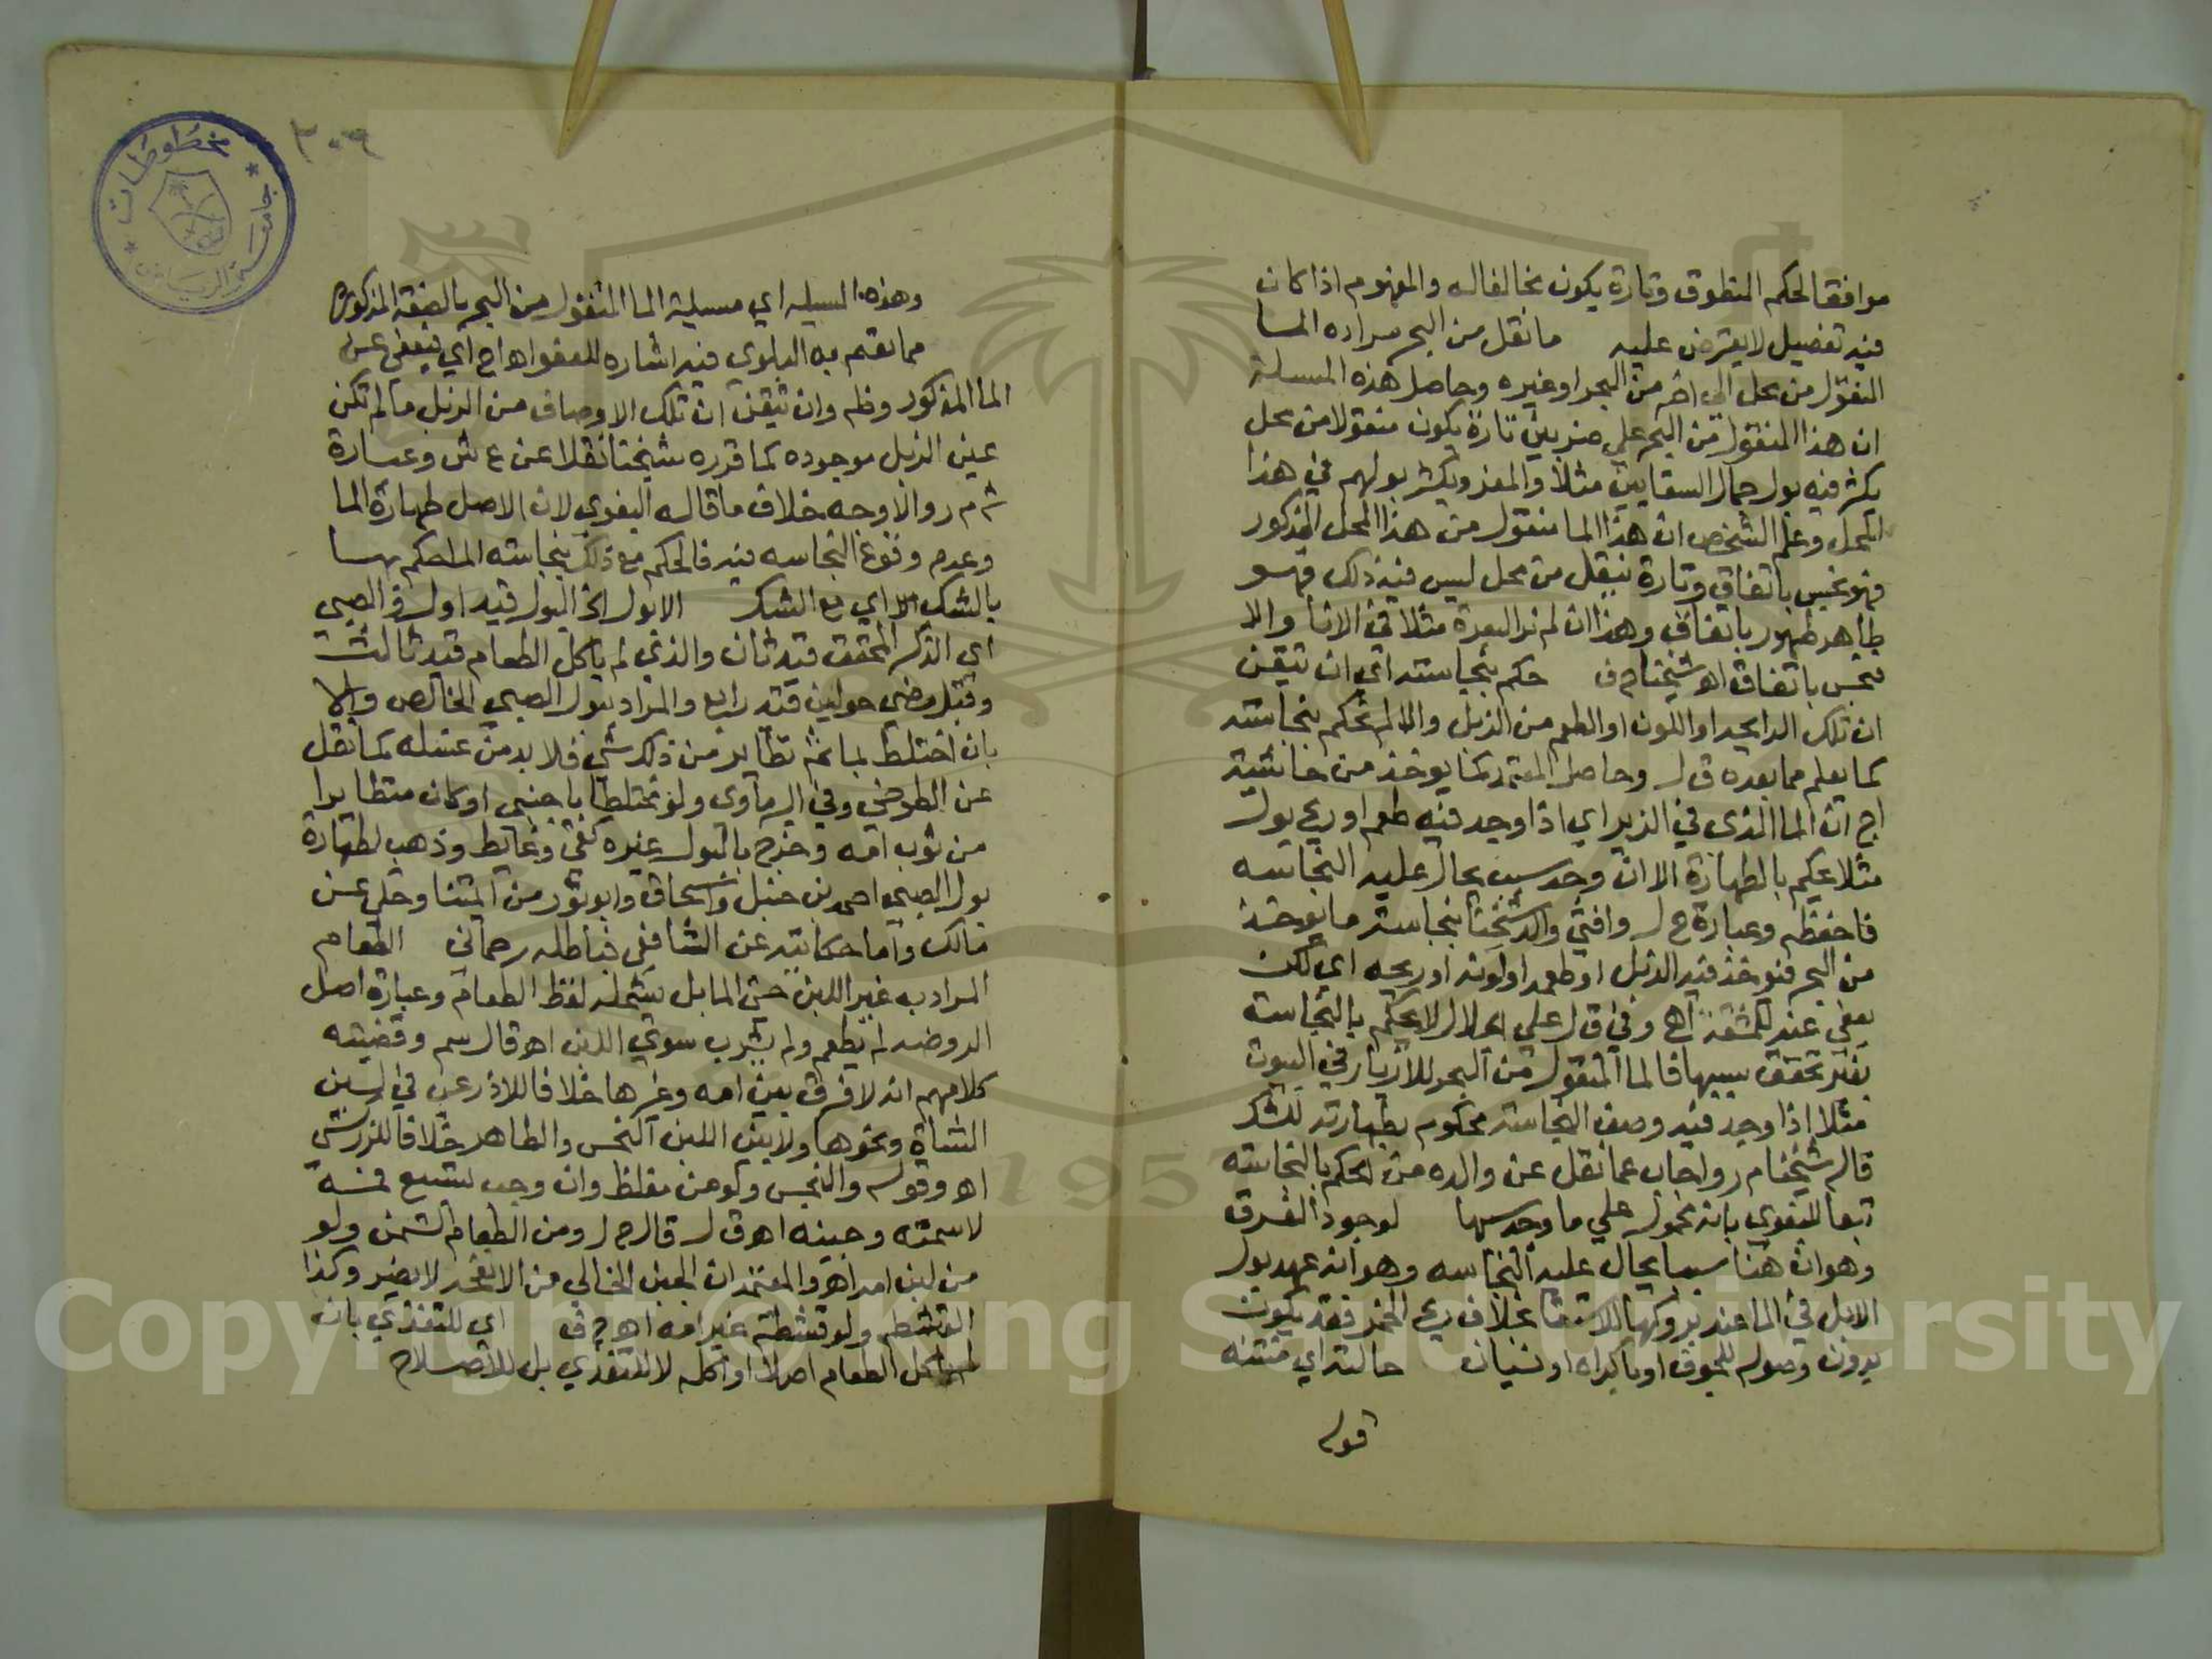 موافقا لحكم المنطوق وتارة يكون مخالفا له والمفهوم اذا كان
فيه تفصيل لا يعترض عليه ما نقل من البحر مراده الما
المنقول من محل الي اخر من البحر او غيره وحاصل هذه المسيلة
ان هذا المنقول من البحر علي ضربين تارة يكون منقولا من محل
يكثر فيه بول جمال السقايين مثلا والمعز ويكثر بولهم في هذا
المحل وعلم الشخص ان هذا الما منقول من هذا المحل المذكور
فهو نجس باتفاق وتارة ينقل من محل ليس فيه ذلك فهو
طاهر طهور باتفاق وهذا ان لم نر البعرة مثلا في الانا والا
فنجس باتفاق اه شيخنا ح ف حكم بنجاسته اي ان تيقن
ان تلك الرايحه او اللون او الطعم من الزبل والا لم نحكم بنجاسته
كما يعلم مما بعده ق ل وحاصل المعتمد كما يوخذ من حاشية
اج ان الما الذي في الزير اي اذا وجد فيه طعم او ريح بول
مثلا يحكم بالطهارة الا ان وجد سبب يحال عليه النجاسه
فاحفظه وعبارة ح ل وافتي والد شيخنا بنجاسة ما يوخذ
من البحر فيوخذ فيه الزبل او طعمه او لونه او ريحه اي لكن
يعفي عنه للمشقة اه وفي ق ل علي الجلال لا يحكم بالنجاسة
بغير تحقق سببها فالما المنقول من البحر للازيار في البيوت
مثلا اذا وجد فيه وصف النجاسة محكوم بطهارته للشك
قاله شيخنا م ر واجاب عما نقل عن والده من الحكم بالنجاسة
تبعا للبغوي بانه محمول علي ما وجد سببها لوجود الفرق
وهو ان هنا سببا يحال عليه النجاسه وهو انه عهد بول
الابل في الما عند بروكها للاستقا بخلاف ريح الخمر فقد يكون
بدون وصوله للجوف او باكراه او نسيان حالته اي
قوله
وهذه المسيله اي مسيلة الما المنقول من البحر بالصفة المذكورة
مما تعم به البلوي فيه اشاره للعفو اه اج اي فيعفي عن
الما المذكور وظم وان تيقن ان تلك الاوصاف من الزبل ما لم تكن
عين الزبل موجوده كما قرره شيخنا نقلا عن ع ش وعبارة
ش م ر والاوجه خلاف ما قاله البغوي لان الاصل طهارة الما
وعدم وقوع النجاسه فيه فالحكم مع ذلك بنجاسته المحكم بها
بالشك اي مع الشك الا بول الخ البول قيد اول والصبي
اي الذكر المحقق قيد ثان والذي لم ياكل الطعام قيد ثالث
وقبل مضي حولين قيد رابع والمراد بول الصبي الخالص والا
بان اختلط بما ثم تطاير من ذلك شي فلا بد من غسله كما نقل
عن الطوخي وفي البرماوي ولو مختلطا باجنبي او كان متطايرا
من ثوب امه وخرج بالبول غيره كقي وغايط وذهب لطهارة
بول الصبي احمد بن حنبل واسحاق وابو ثور من ايمتنا وحكي عن
مالك واما حكايته عن الشافعي فباطله رحماني الطعام
المراد به غير اللبن حتي الما بل يشمله لفظ الطعام وعبارة اصل
الروضه لم يطعم ولم يشرب سوي اللبن اه قال سم وقضيته
كلامهم انه لا فرق بين امه وغيرها خلافا للاذرعي في لبن
الشاة ونحوها ولا بين اللبن النجس والطاهر خلافا للزركشي
اه وقوله والنجس ولو من مغلظ وان وجب تسبيع فمه
لا سمنه وجبنه اه ق ل قال ح ل ومن الطعام السمن ولو
من لبن امه اه والمعتمد ان الجبن الخالي من الانفحه لا يضر وكذا
القشطه ولو قشطة غير امه اه ح ف اي للتغذي بان
لم ياكل الطعام اصلا او اكله لا للتغذي بل للاصلاح
٢٠٩
جامعة الرياض
مخطوطات
1957
Copyright © King Saud University